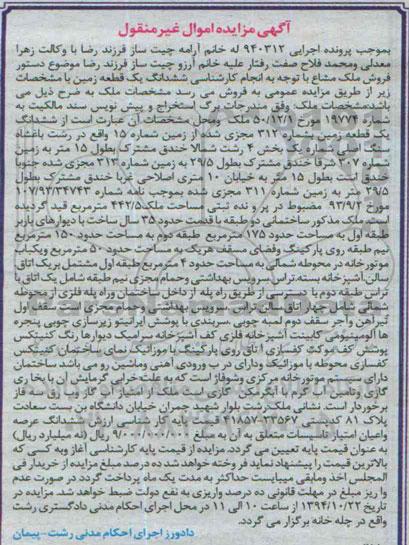 آگهی مزایده اموال غیر منقول
بموجب پرونده اجرایی ۹۴۰۳۱۲ له خانم آرامه چیت ساز فرزند رضا با وکالت زهرا
معدلی ومحمد فلاح صفت رفتار علیه خانم آرزو چیت ساز فرزند رضا موضوع دستور
فروش ملک مشاع با توجه به انجام کارشناسی ششدانگ یک قطعه زمین با مشخصات
زیر از طریق مزایده عمومی به فروش می رسد مشخصات ملک به شرح ذیل می
باشد:مشخصات ملک: وفق مندرجات برگ استخراج و پیش نویس سند مالکیت به
شماره ۱۹۷۷۴ مورخ ۵۰/۱۲/۱ ملک و محل مشخصات آن عبارت است از ششدانگ
یک قطعه زمین به شماره ۳۱۲ مجزی شده از شماره ۱۵ واقع در رشت باغشاه
سنگ اصلی شماره یک بخش ۴ رشت شمالا خندق مشترک بطول ۱۵ متر به زمین
شماره ۳۰۷ شرقا خندق مشترک بطول ۲۹/۵ متر به زمین شماره ۳۱۳ مجزی شده جنوبا
خندق است بطول ۱۵ متر به خیابان ۱۰ متری اصلاحی غربا خندق مشترک بطول
۲۹/۵ متر به زمین شماره ۳۱۱ مجزی شده بموجب نامه شماره ۱۰۷/۹۳/۳۴۷۴۳
مورخ ۹۳/۹/۲ مضبوط در پرونده ثبتی مساحت ملک ۴۴۲/۵ مترمربع قید گردیده
است. ملک مذکور ساختمانی دو طبقه با قدمت حدود ۳۵ سال ساخت با دیوارهای باربر
طبقه اول به مساحت حدود ۱۷۵ مترمربع طبقه دوم به مساحت حدود ۱۵۰ مترمربع
نیم طبقه روی پارکینگ وفضای مسقف هریک به مساحت حدود ۵۰ مترمربع ویکباب
موتورخانه در محوطه شمالی به مساحت حدود ۴ مترمربع طبقه اول مشتمل بریک اتاق
سالن آشپزخانه بسته تراس سرویس بهداشتی وحمام مجزی نیم طبقه شامل یک اتاق با
تراس طبقه دوم با دسترسی از طریق راه پله از داخل ساختمان وراه پله فلزی از محوطه
شمالی شامل چهار اتاق سالن تراس سرویس بهداشتی وحمام مجزی است سقف اول
تیرآهن وآجر سقف دوم لمبه چوبی سربندی با پوشش ایرانیتو زیرسازی چوبی پنجره
ها آلومینیومی کابینت آشپزخانه فلزی کف آشپزخانه سرامیک دیوارها رنگ کنیتکس
پوشش کف موکت کفسازی اتاق روی پارکینگ با موزائیک نمای ساختمان کنیتکس
کفسازی محوطه با موزائیک ودارای درب ورودی آهنی وماشین رو می باشد ساختمان
دارای سیستم موتورخانه مرکزی وشوفاژ است که به علت خرابی گرمایش آن با بخاری
گازی وتامین آب گرم با آبگرمکن گازی است ملک از امتیاز آب گاز وبرق سه فاز
برخوردار است. نشانی ملک رشت بلوار شهید چمران خیابان دانشگاه بن بست سعادت
پلاک ۸۱ کدپستی ۳۳۵۶۷-۴۱۸۵۷ قیمت پایه کارشناسی ارزش ششدانگ عرصه
واعیان امتیازات تاسیسات متعلق به آن به مبلغ ۹/۰۰۰/۰۰۰/۰۰۰ ریال (نه میلیارد ریال)
به عنوان قیمت پایه تعیین می گردد. مزایده از قیمت پایه کارشناسی آغاز وبه کسی که
بالاترین قیمت را پیشنهاد نماید فروخته خواهد شد ده درصد مبلغ مزایده از خریدار فی
المجلس اخذ ومابقی میبایست حداکثر به مدت یک ماه پرداخت گردد در صورت عدم
واریز مبلغ در مهلت قانونی ده درصد واریزی به نفع دولت ضبط خواهد شد. مزایده در
تاریخ ۱۳۹۴/۱۰/۲۲ از ساعت ۱۰ الی ۱۱ در محل اجرای احکام مدنی دادگستری رشت
واقع در جله خانه برگزار می گردد.
دادورز اجرای احکام مدنی رشت-پیمان